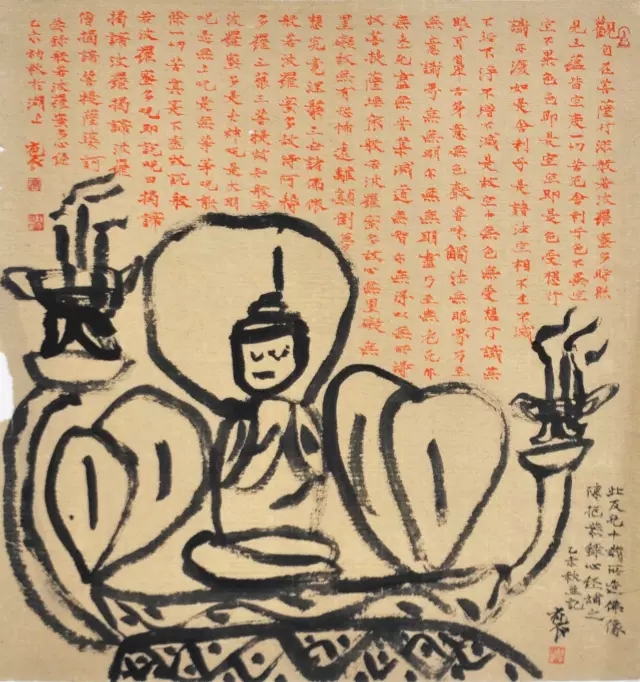 觀自在菩薩行深般若波羅蜜多時照
見五蘊皆空度一切苦厄舍利子色不異空
空不異色色即是空空即是色受想行
識亦復如是舍利子是諸法空相不生不滅
不垢不淨不增不減是故空中無色無受想行識無
眼耳鼻舌身意無色聲香味觸法無眼界乃至
無意識界無無明亦無無明盡乃至無老死亦
無老死盡無苦集滅道無智亦無得以無所得
故菩提薩埵依般若波羅蜜多故心無罣礙無
罣礙故無有恐怖遠離顛倒夢
想究竟涅槃三世諸佛依
般若波羅蜜多故得阿耨
多羅三藐三菩提故知般若
波羅蜜多是大神咒是大明
咒是無上咒是無等等咒能
除一切苦真實不虛故說般
若波羅蜜多咒即說咒曰揭諦
揭諦波羅揭諦波羅
僧揭諦菩提薩婆訶
般若波羅蜜多心經
乙亥初秋於湖上
此友兒十歲所造佛像
錄心經補之
乙亥秋並記